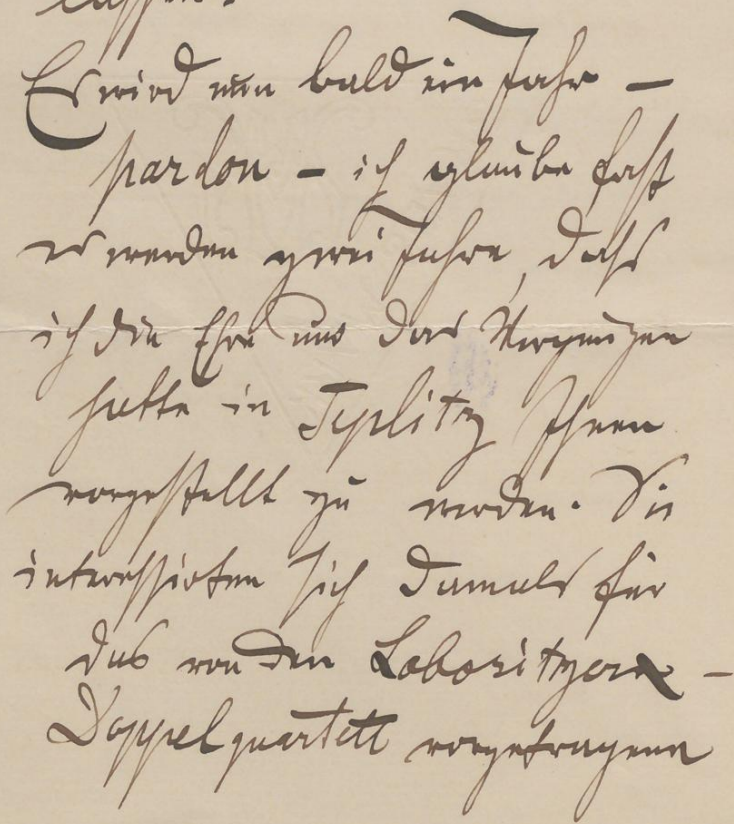 lassen.
Es wird nun bald ein Jahr –
pardon – ich glaube fast
es werden zwei Jahre, daß
ich die Ehre und das Vergnügen
hatte in Teplitz Ihnen
vorgestellt zu werden. Sie
interessirten sich damals für
das von den Lobositzer –
Doppelquartett vorgetragene